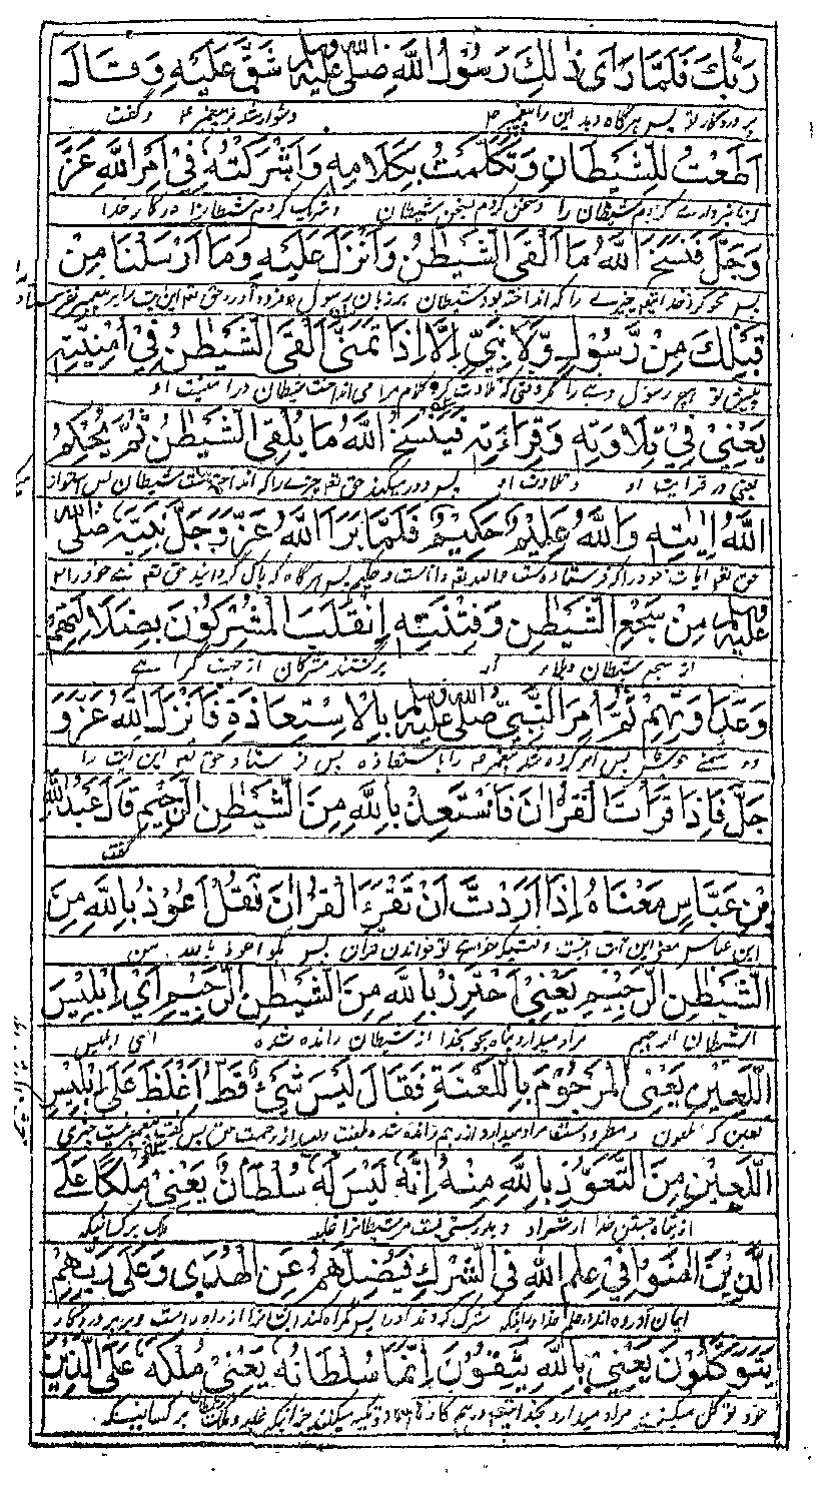 رَبُّكَ فَلَمَّا رَاٰى ذٰلِكَ رَسُوْلُ اللّٰهِ صَلَّى اللّٰهُ عَلَيْهِ وَسَلَّمَ شَقَّ عَلَيْهِ وَقَالَ
پروردگار تو پس هرگاه دید این را پیغمبر ۳ دشوار شد بر پیغمبر ۳ و گفت
اَطَعْتُ لِلشَّيْطَانِ وَتَكَلَّمْتُ بِكَلَامِهٖ وَاَشْرَكْتُهٗ فِيْ اَمْرِ اللّٰهِ عَزَّ
شیطان را و سخن کردم بسخن شیطان و شریک کردم شیطان را در کار خدا
وَجَلَّ فَنَسَخَ اللّٰهُ مَا اَلْقَى الشَّيْطٰنُ وَاَنْزَلَ عَلَيْهِ وَمَا اَرْسَلْنَا مِنْ
پس محو کرد خدایتعالی چیزے را که انداخته بود شیطان بر زبان رسول
قَبْلِكَ مِنْ رَّسُوْلٍ وَّلَا نَبِيٍّ اِلَّا اِذَا تَمَنّٰى اَلْقَى الشَّيْطٰنُ فِيْ اُمْنِيَّتِهٖ
پیش تو هیچ رسول و نبے را مگر وقتی که تلاوت کرد کلام مرا می انداخت شیطان در امنیت او
يَعْنِيْ فِيْ تِلَاوَتِهٖ وَقِرَاءَتِهٖ فَيَنْسَخُ اللّٰهُ مَا يُلْقِى الشَّيْطٰنُ ثُمَّ يُحْكِمُ
یعنی در قرایت او و تلاوت او پس دور میکند حق تعالی چیزے را که انداخته است شیطان پس استوار
اللّٰهُ اٰيٰتِهٖ وَاللّٰهُ عَلِيْمٌ حَكِيْمٌ فَلَمَّا بَرَاَ اللّٰهُ عَزَّ وَجَلَّ نَبِيَّهٗ صَلَّى اللّٰهُ
حق تعالی آیات خود را که فرستاده است و الله تعالی دانا است و حکیم پس هرگاه که پاک گردانید حق تعالی نبی خود را ۳
عَلَيْهِ وَسَلَّمَ مِنْ سَجْعِ الشَّيْطٰنِ وَفِتْنَتِهٖ اِنْقَلَبَ الْمُشْرِكُوْنَ بِضَلَالَتِهِمْ
از سجع شیطان و بلاء او برگشتند مشرکان از جهت گمراهی
وَعَدَاوَتِهِمْ ثُمَّ اُمِرَ النَّبِيُّ صَلَّى اللّٰهُ عَلَيْهِ وَسَلَّمَ بِالْاِسْتِعَاذَةِ فَاَنْزَلَ اللّٰهُ عَزَّ وَ
و دشمنے خویش پس امر کرده شد پیغمبر ۳ را باستعاذه پس فرستاد حق تعالی این آیت را
جَلَّ فَاِذَا قَرَاْتَ الْقُرْاٰنَ فَاسْتَعِذْ بِاللّٰهِ مِنَ الشَّيْطٰنِ الرَّجِيْمِ قَالَ عَبْدُ اللّٰهِ
گفت
بْنُ عَبَّاسٍ مَعْنَاهُ اِذَا اَرَدْتَّ اَنْ تَقْرَءَ الْقُرْاٰنَ فَقُلْ اَعُوْذُ بِاللّٰهِ مِنَ
ابن عباس معنی این آیت اینست وقتیکه خواہی تو خواندن قرآن پس بگو اعوذ بالله من
الشَّيْطٰنِ الرَّجِيْمِ يَعْنِيْ اَحْتَرِزُ بِاللّٰهِ مِنَ الشَّيْطٰنِ الرَّجِيْمِ اَيْ اِبْلِيْسَ
الشیطان الرجیم مراد میدارد پناه جویم بخدا از شیطان رانده شده ای ابلیس
اللَّعِيْنِ يَعْنِى الْمَرْجُوْمَ بِاللَّعْنَةِ فَقَالَ لَيْسَ شَيْءٌ قَطُّ اَغْلَظَ عَلٰى اِبْلِيْسَ
لعین که ملعون و مطرود ست مراد میدارد از رجیم رانده شده
اللَّعِيْنِ مِنَ التَّعَوُّذِ بِاللّٰهِ مِنْهُ اِنَّهٗ لَيْسَ لَهٗ سُلْطَانٌ يَعْنِيْ مُلْكًا عَلَى
از پناه جستن بخدا از شر او و بدرستی نیست مر شیطان را غلبه ملک بر کسانیکه
الَّذِيْنَ اٰمَنُوْا فِيْ عِلْمِ اللّٰهِ فِى الشِّرْكِ فَيُضِلُّهُمْ عَنِ الْهُدٰى وَعَلٰى رَبِّهِمْ
ایمان آورده اند در علم خدا شرک پس گمراه کند ایشان را از راه راست و بر پروردگار
يَتَوَكَّلُوْنَ يَعْنِيْ بِاللّٰهِ يَثِقُوْنَ اِنَّمَا سُلْطَانُهٗ يَعْنِيْ مُلْكَهٗ عَلَى الَّذِيْنَ
خود توکل میکنند مراد میدارد بخدا بر کسانیستکه